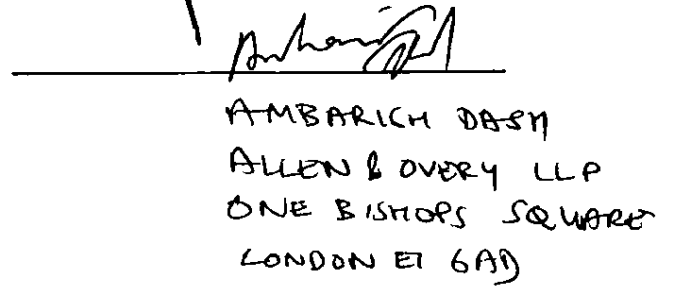 AMBARICH DASH
ALLEN & OVERY LLP
ONE BISHOPS SQUARE
LONDON E1 6AD